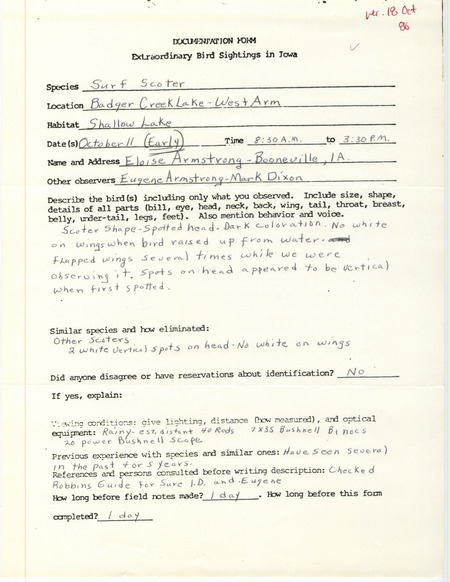 rec. 18 Oct
86
DOCUMENTATION FORM
Extraordinary Bird Sightings in Iowa
Species Surf Scoter
Location Badger Creek Lake - West Arm
Habitat Shallow Lake
Date(s) October 11 (Early) Time 8:30 A.M. to 3:30 P.M.
Name and Address Eloise Armstrong - Booneville, IA.
Other observers Eugene Armstrong - Mark Dixon
Describe the bird(s) including only what you observed. Include size, shape,
details of all parts (bill, eye, head, neck, back, wing, tail, throat, breast,
belly, under-tail, legs, feet). Also mention behavior and voice.
Scoter Shape - Spotted head - Dark coloration. No white
on wings when bird raised up from water.
Flapped wings several times while we were
observing it. Spots on head appeared to be vertical
when first spotted.
Similar species and how eliminated:
Other Scoters
2 white vertical spots on head - No white on wings
Did anyone disagree or have reservations about identification? No
If yes, explain:
Viewing conditions: give lighting, distance (how measured), and optical
equipment: Rainy - est. distant 40 Rods 7X35 Bushnell Binocs
20 power Bushnell Scope
Previous experience with species and similar ones: Have seen several
in the past 4 or 5 years.
References and persons consulted before writing description: Checked
Robbins Guide for Sure I.D. and - Eugene
How long before field notes made? 1 day. How long before this form
completed? 1 day